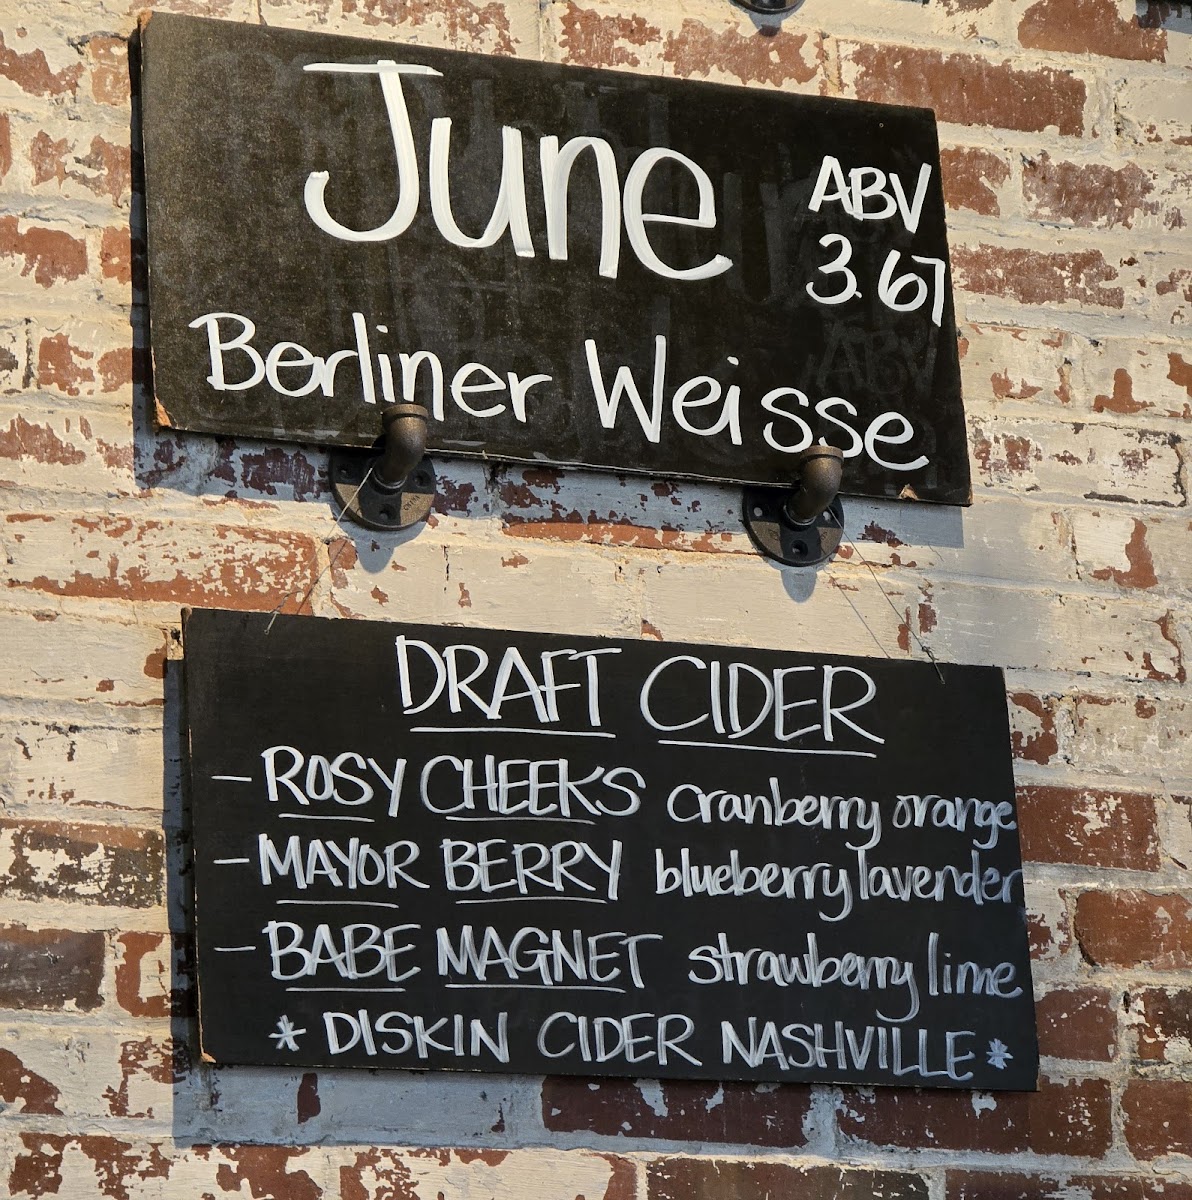 June
ABV
3.67
Berliner Weisse
DRAFT CIDER
- ROSY CHEEKS cranberry orange
- MAYOR BERRY blueberry lavender
- BABE MAGNET strawberry lime
* DISKIN CIDER NASHVILLE *